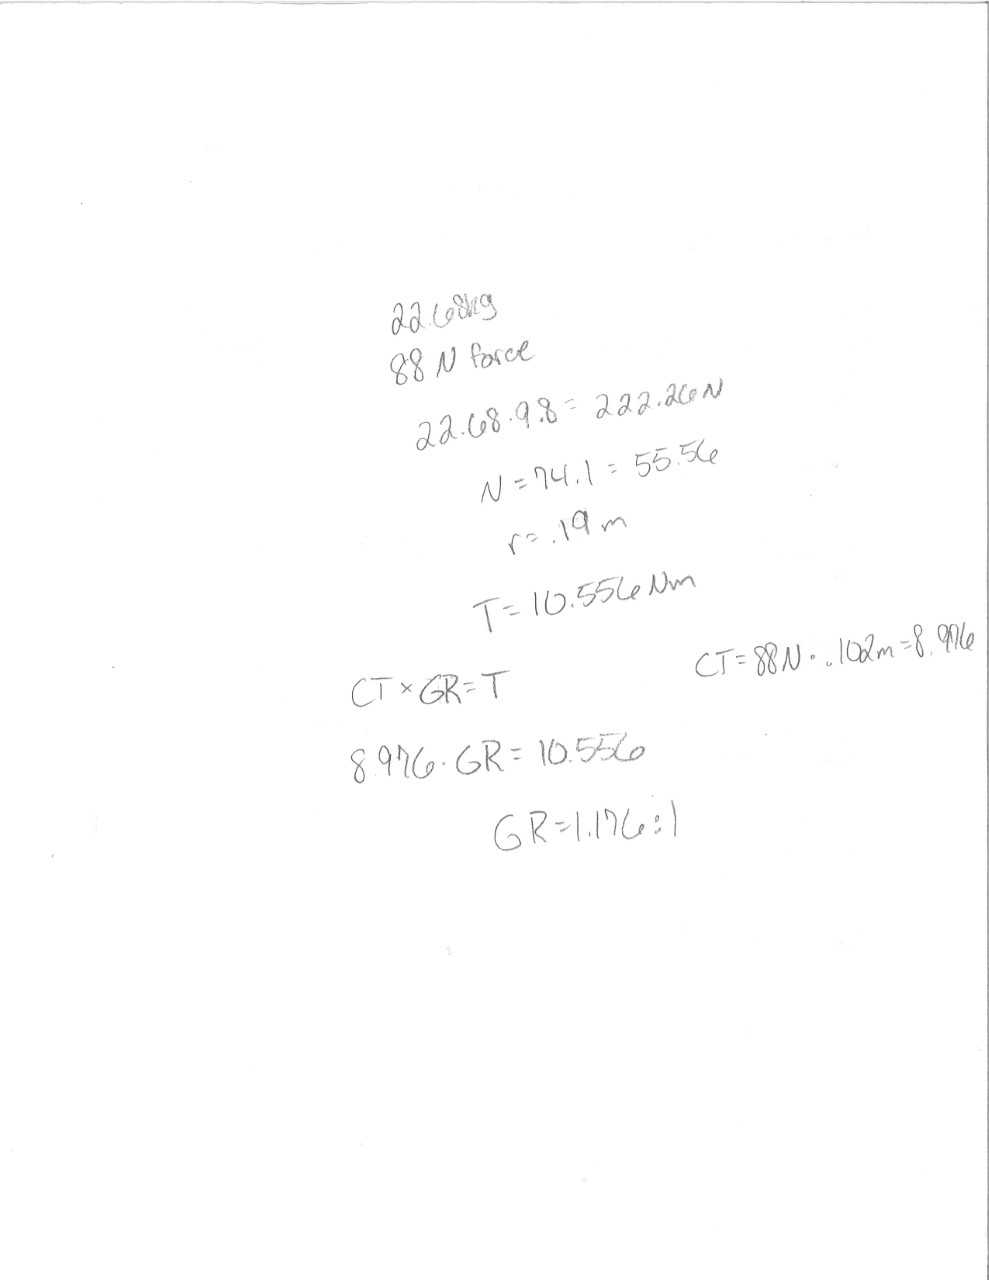 22.68kg
88 N force
22.68 · 9.8 = 222.26 N
N = 74.1 = 55.56
r = .19 m
T = 10.556 Nm
CT = 88N · .102m = 8.976
CT × GR = T
8.976 · GR = 10.556
GR = 1.176:1